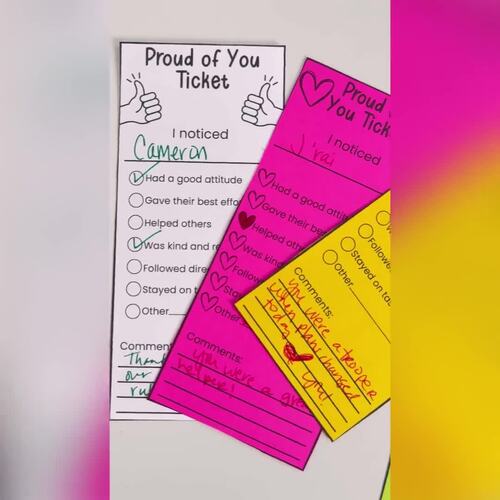 Proud of You
Ticket
I noticed
Cameron
Had a good attitude
Gave their best effo
Helped others
Was kind and re
Followed dire
Stayed on t
Other
Comment
Than
our
ru
Proud
You Tick
I noticed
J'rai
Had a good atti
Gave their be
Helped oth
Was kin
Follow
Sta
Other
Comments:
you were a gre
helper!
W
Follow
Stayed on ta
Other
Comments:
you were a trooper
when plans changed
today
you!